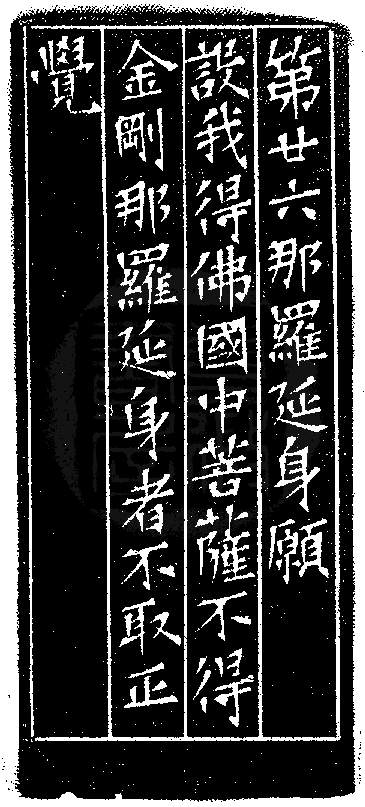 第廿六那羅延身願
設我得佛國中菩薩不得
金剛那羅延身者不取正
覺